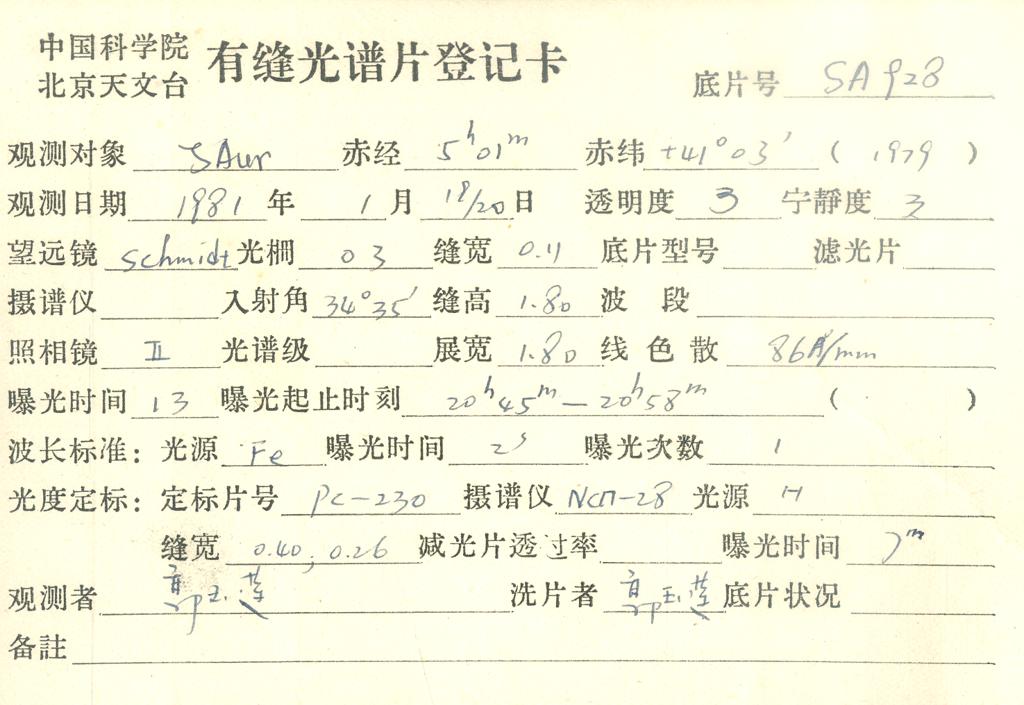 中国科学院
北京天文台 有缝光谱片登记卡 底片号 SA928
观测对象 ζAur 赤经 5ʰ01ᵐ 赤纬 +41°03′ ( 1979 )
观测日期 1981 年 1 月 19/20 日 透明度 3 宁静度 3
望远镜 Schmidt 光栅 03 缝宽 0.11 底片型号 滤光片
摄谱仪 入射角 34°35′ 缝高 1.80 波段
照相镜 II 光谱级 展宽 1.80 线色散 86Å/mm
曝光时间 13 曝光起止时刻 20ʰ45ᵐ—20ʰ58ᵐ ( )
波长标准: 光源 Fe 曝光时间 2ˢ 曝光次数 1
光度定标: 定标片号 PC-230 摄谱仪 ИСП-28 光源 H
缝宽 0.40; 0.26 减光片透过率 曝光时间 7ᵐ
观测者 郭玉莲 洗片者 郭玉莲 底片状况
备註